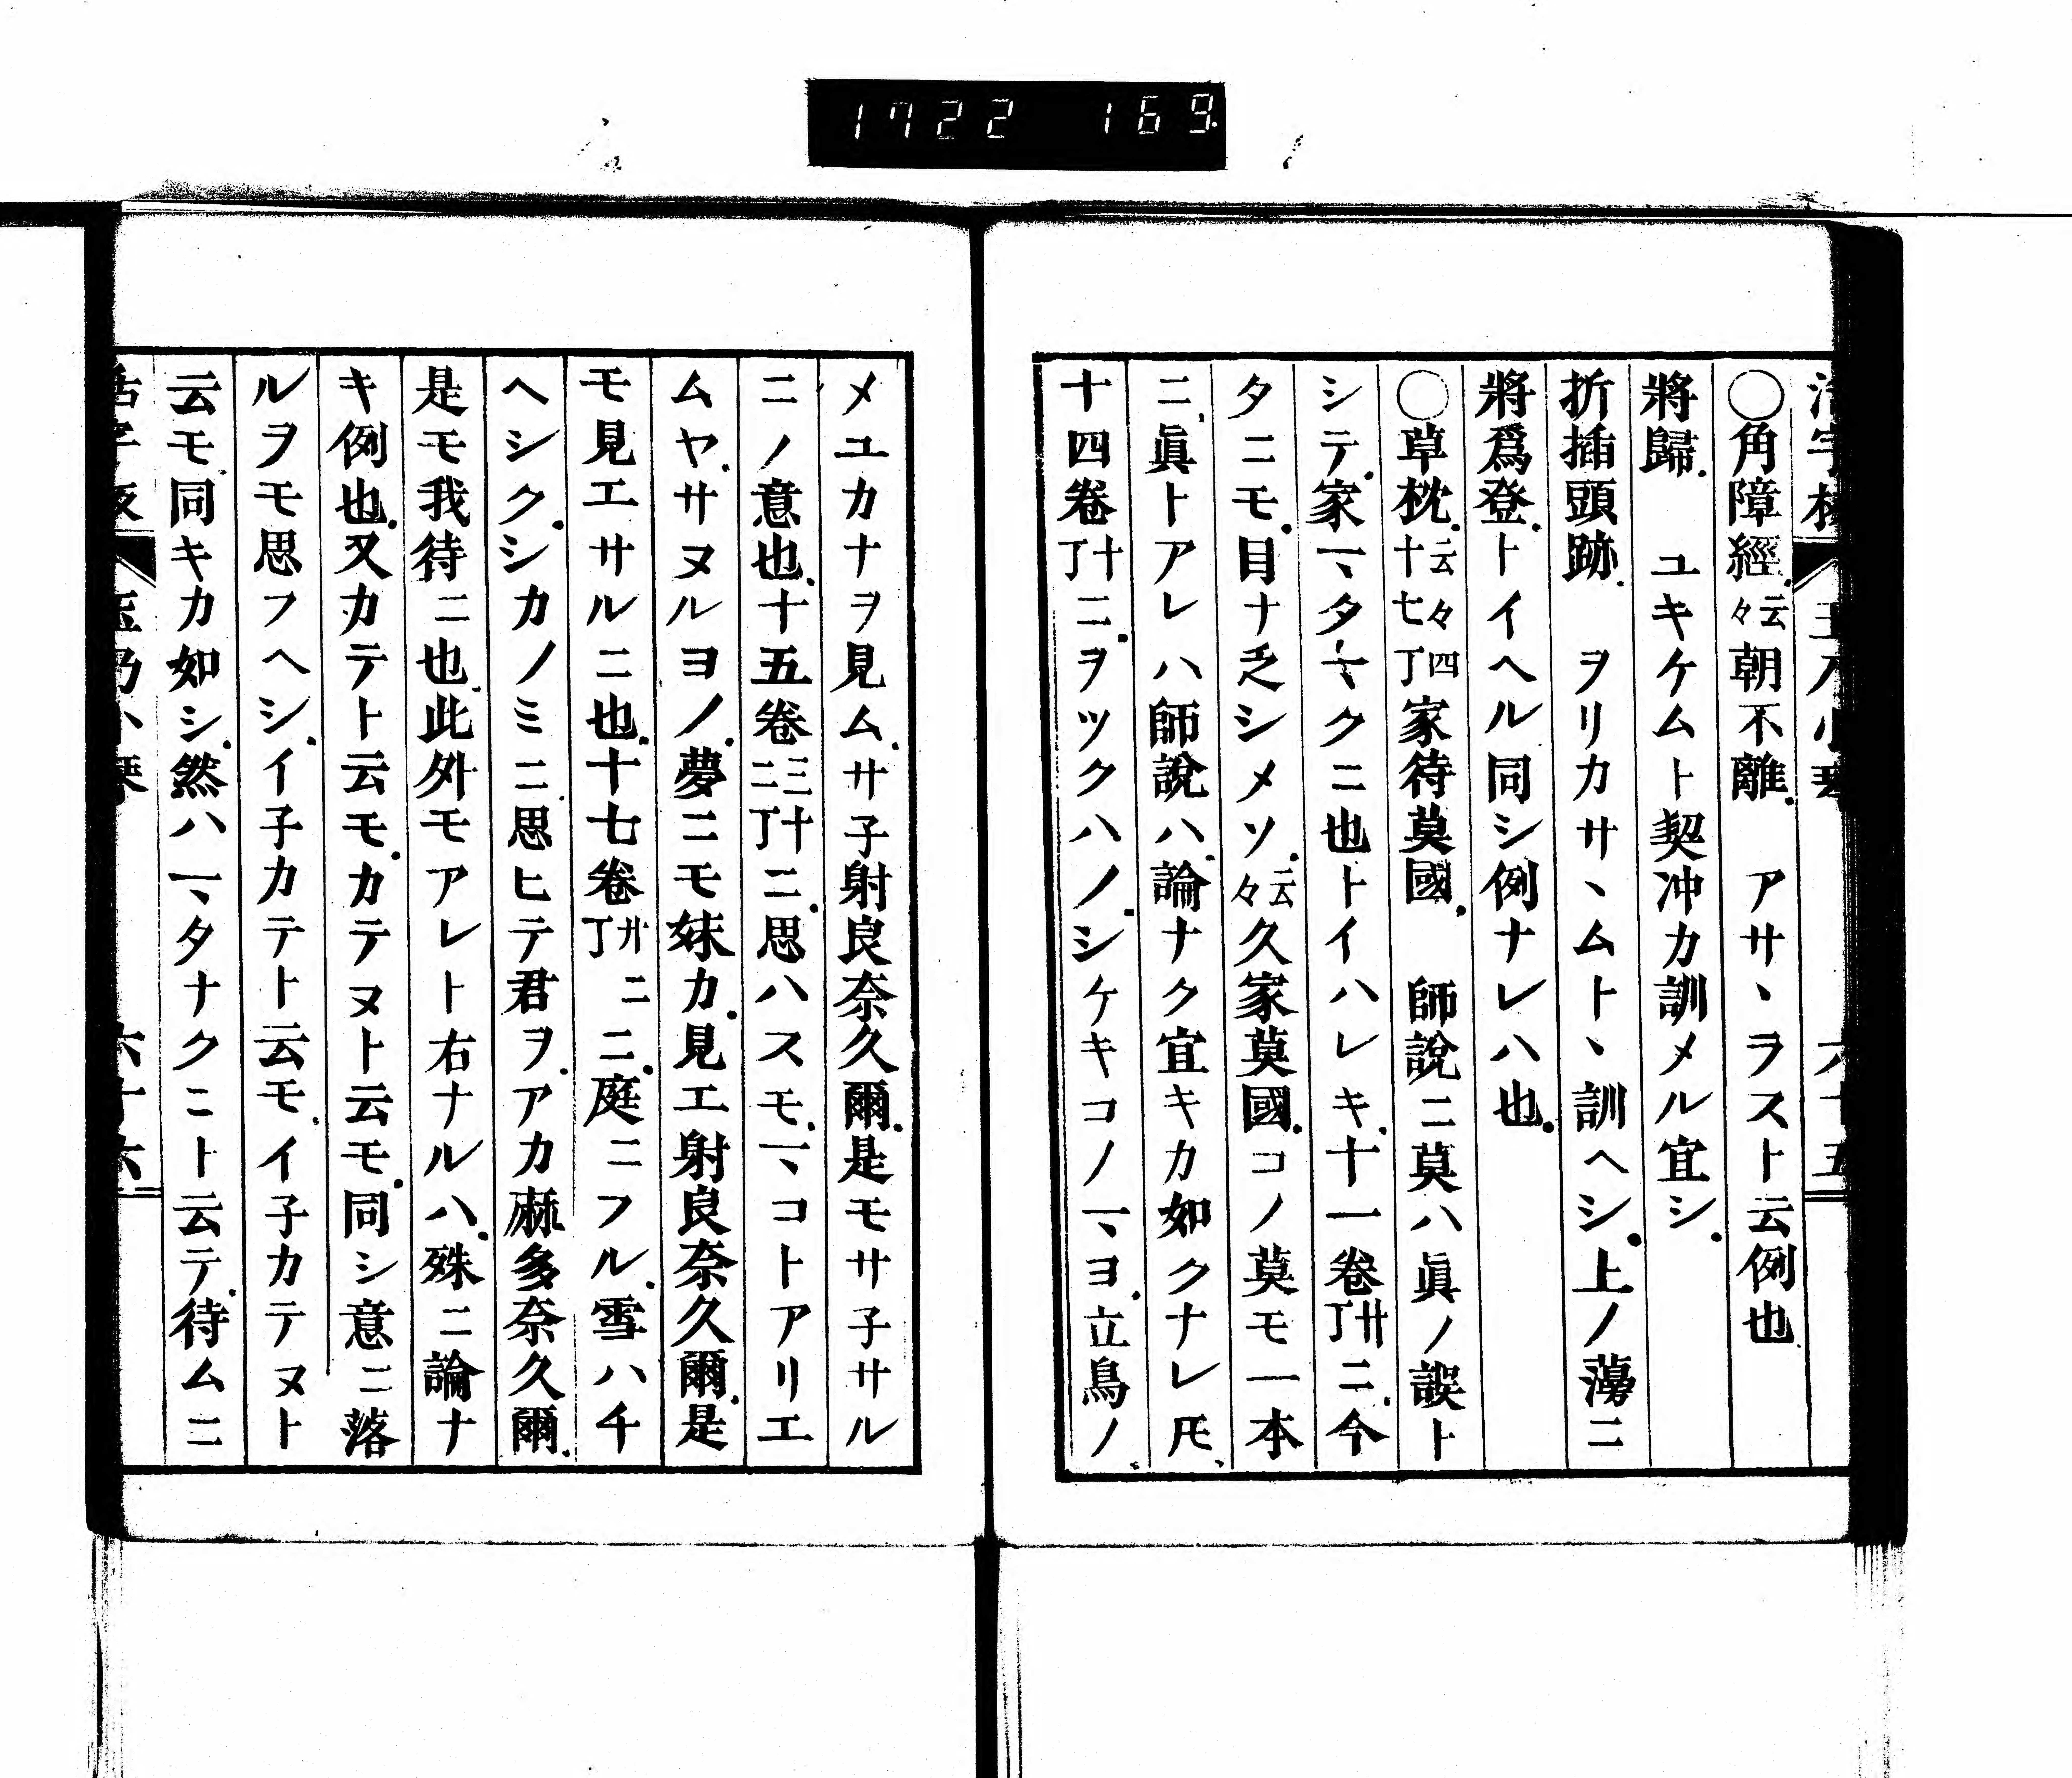 1722 169
○角障經云々朝不離　アサヽラスト云例也
將歸　ユキケムト契冲カ訓メル宜シ
折插頭跡　ヲリカサヽムトヽ訓ヘシ上ノ蕩ニ
將爲登トイヘル同シ例ナレハ也
○草枕云々十七四丁家待莫國　師說ニ莫ハ眞ノ誤ト
シテ家マタナクニ也トイハレキ十一卷廿丁ニ今
タニモ目ナ乏シメソ云々久家莫國コノ莫モ一本
ニ眞トアレハ師說ハ論ナク宜キカ如クナレ𪜈
十四卷十丁ニヲツクハノシケキコノマヨ立鳥ノ
メユカナヲ見ムサ子射良奈久爾是モサ子サル
ニノ意也十五卷三十二丁ニ思ハスモマコトアリエ
ムヤサヌルヨノ夢ニモ妹カ見エ射良奈久爾是
モ見エサルニ也十七卷廿二丁ニ庭ニフル雪ハ千
ヘシクシカノミニ思ヒテ君ヲアカ麻多奈久爾
是モ我待ニ也此外モアレト右ナルハ殊ニ論ナ
キ例也又カテト云モカテヌト云モ同シ意ニ落
ルヲモ思フヘシイ子カテト云モイ子カテヌト
云モ同キカ如シ然ハマタナクニト云テ待ムニ